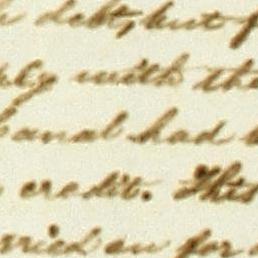 debt, but
with the
canal had
credit. This
rried on for